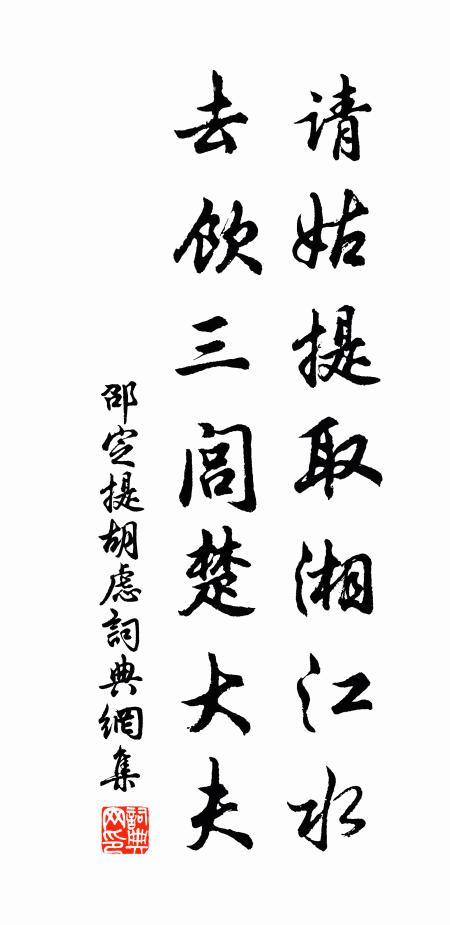 请姑提取湘江水
去饮三闾楚大夫
邵定提胡虑詞典網集
詞典网印